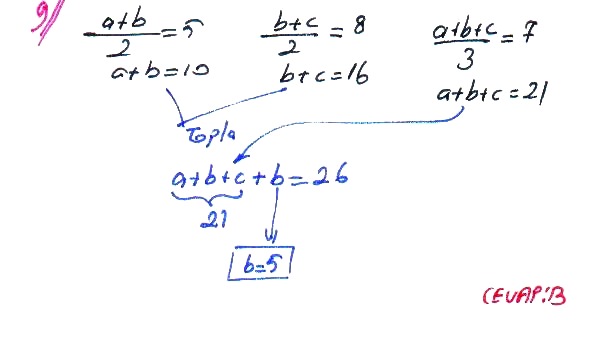 9)
a+b/2 = 5
b+c/2 = 8
a+b+c/3 = 7
a+b=10
b+c=16
a+b+c=21
Topla
a+b+c+b=26
21
b=5
CEVAP:B